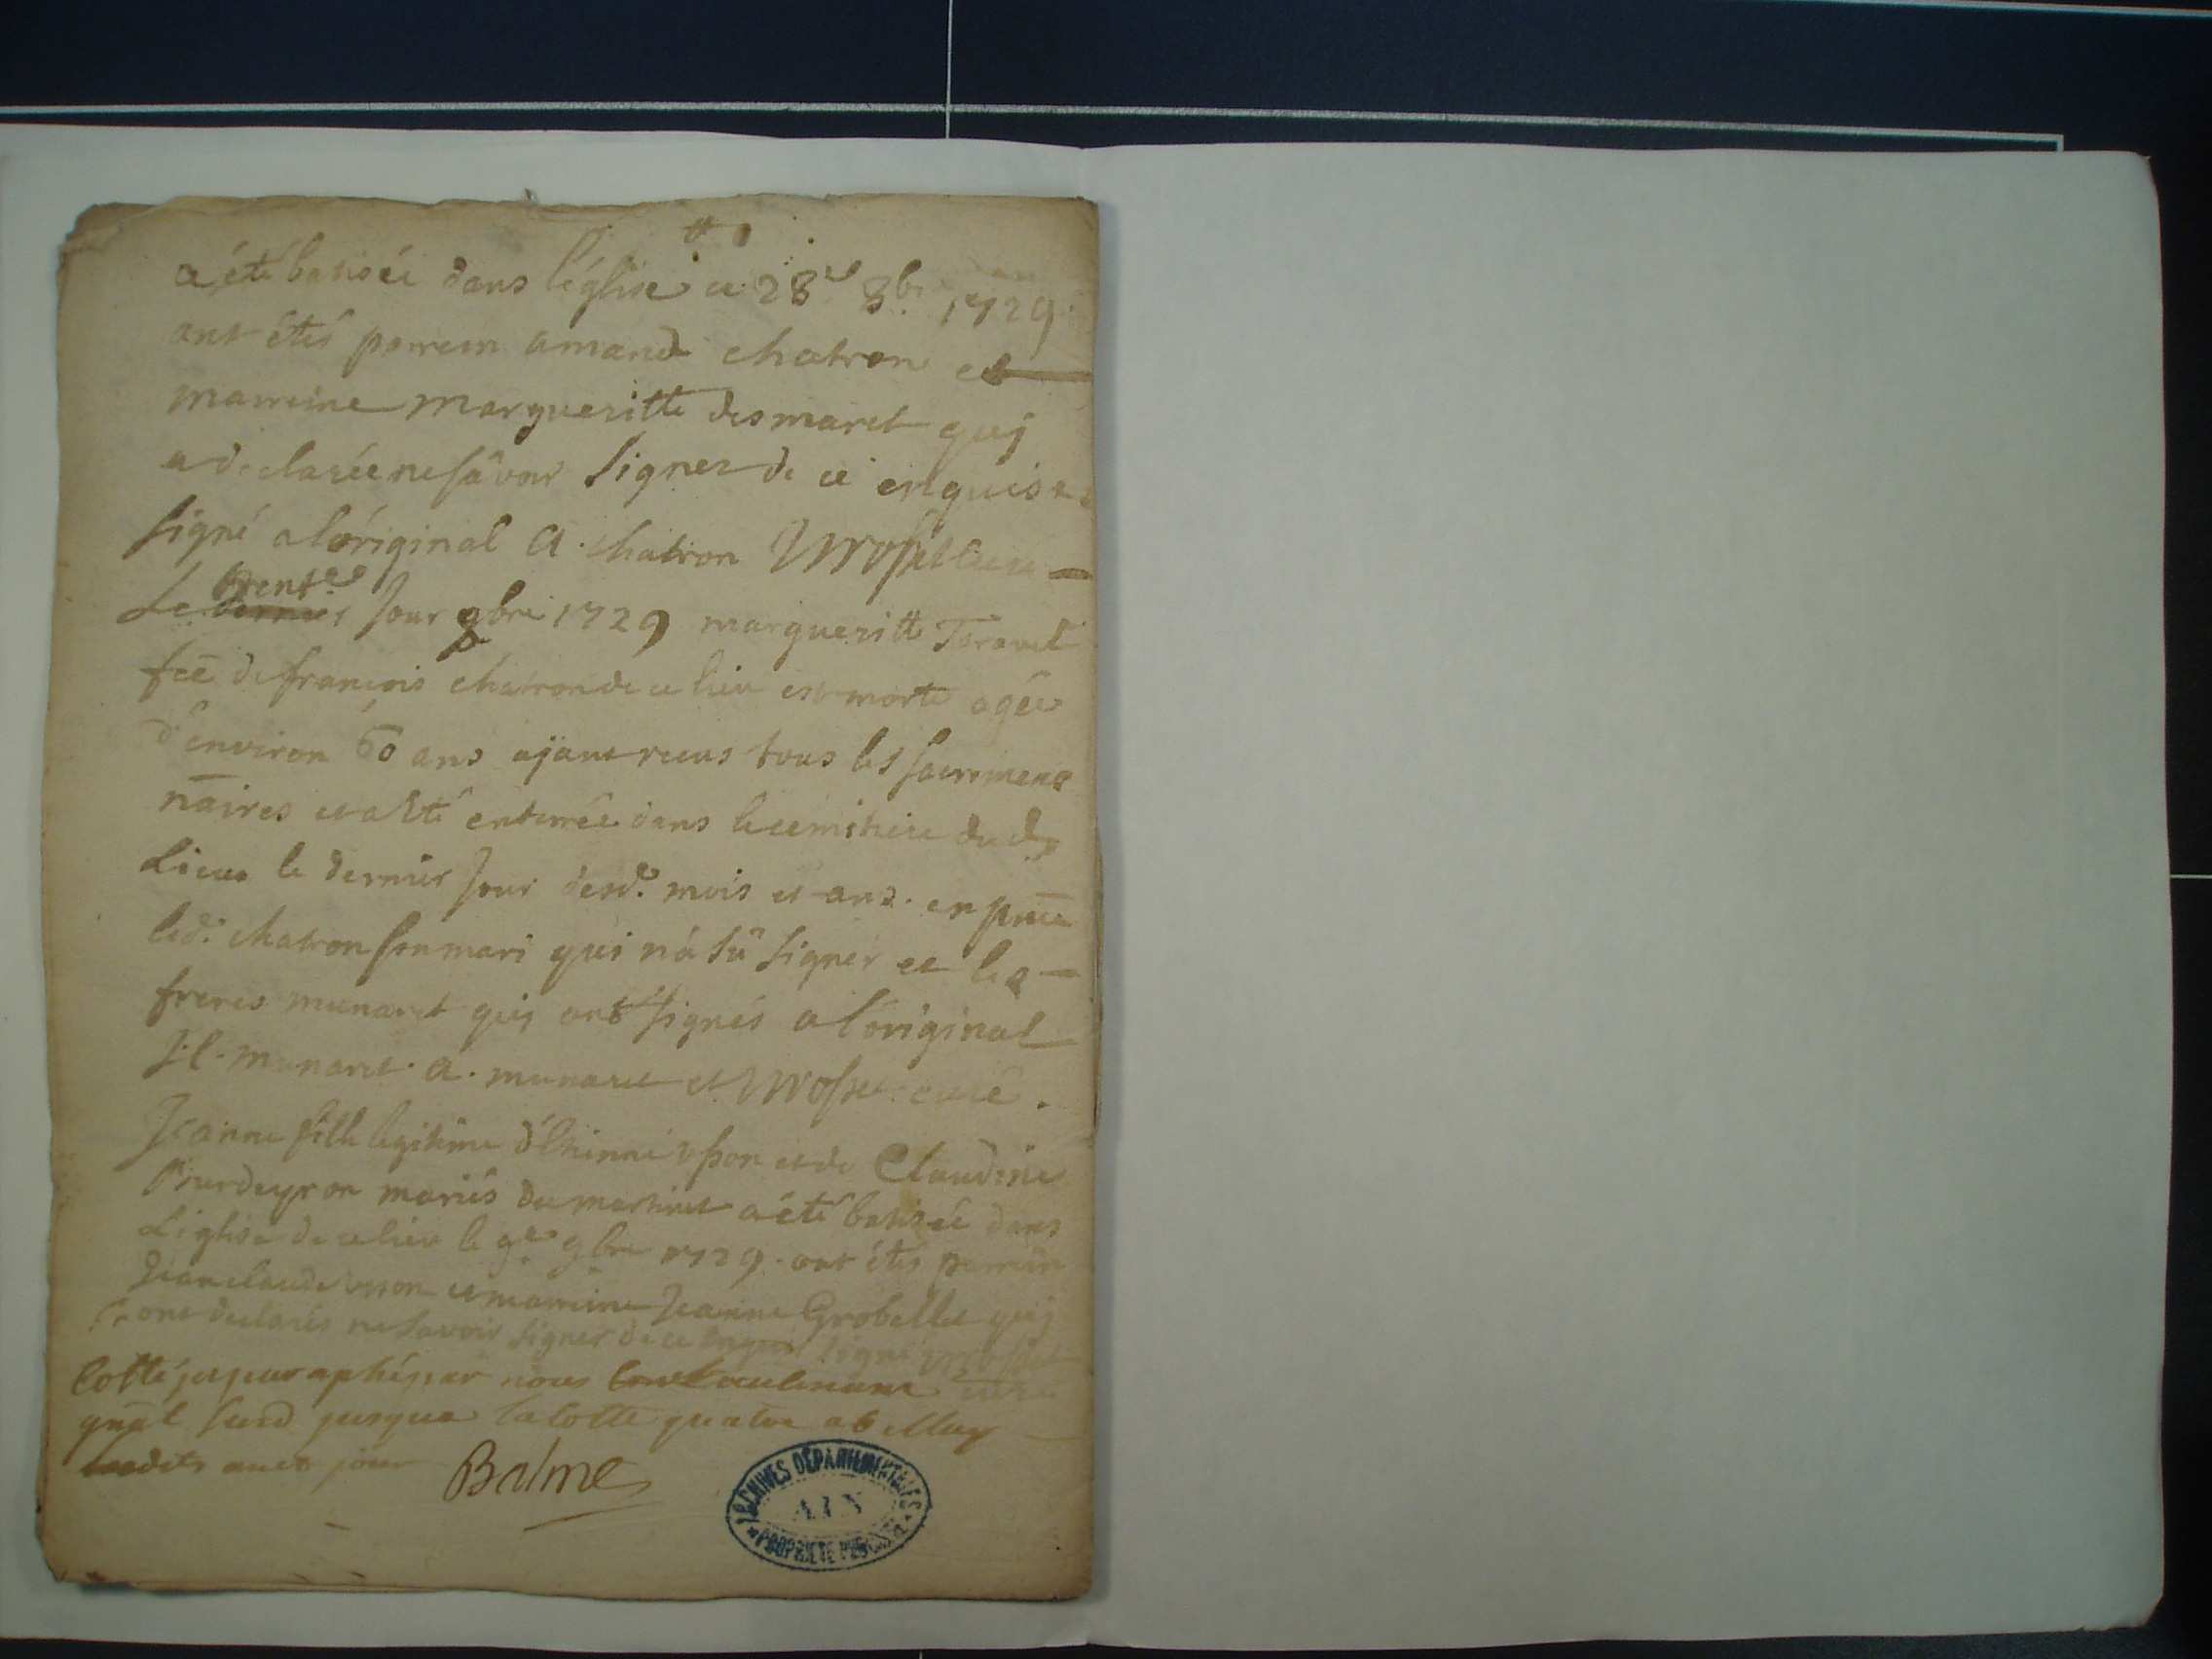 a été batisée dans l'église ce 28e 8bre 1729
ont étés parrein amand chatron et
marreine margueritte desmaret quj
a declarée ne sàvoir signer de ce enquise
signé a lóriginal a. chatron curé
Le trente jour 8bre 1729 margueritte
fee de françois chatron de ce lieu est morte agée
d'environ 60 ans ajant receus tous les sacremens
naires et a êté enterrée dans le cemitiere dud.
Lieux le dernier jour desd. mois et ans. en pnce
led. chatron son mari qui n'a sû signer et les
freres munaret quj ont signés a lóriginal
J. C. munaret. a. munaret et curé.
Jeanne fille legitime d'Ethienne et de Claudine
Burdeyron mariés du martinet a été batisée dans
L'eglise de ce lieu le 9e 9bre 1729. ont étés parrein
Jean claude et marreine Jeanne Grobellet quj
ont declarés ne savoir signer de ce enquis signé
Cotté et paraphé par nous curé
gnal jusqua la cotte quatre a
an et jour Balme
ARCHIVES DÉPARTEMENTALES
AIN
PROPRIÉTÉ PUBLIQUE